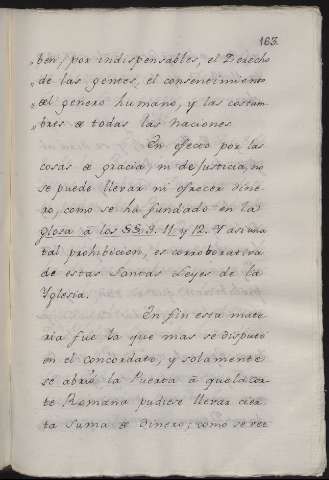 163.
ben, por indispensables, el Derecho
„ de las gentes, el consentimiento
„ del genero humano, y las costum
„ bres de todas las naciones
En efecto por las
cosas de gracia, ni de Justicia, no
se puede llevar ni ofrecer dine
ro, como se ha fundado en la
glosa à los §§. 9. 11 y 12. Y asi una
tal prohibicion, es corroborativa
de estas Santas Leyes de la
Yglesia.
En fin esta mate
ria fue la que mas se disputò
en el concordato, y solamente
se abriò la Puerta à que la Cor
te Romana pudiese llevar cier
ta suma de Dinero; como se ve